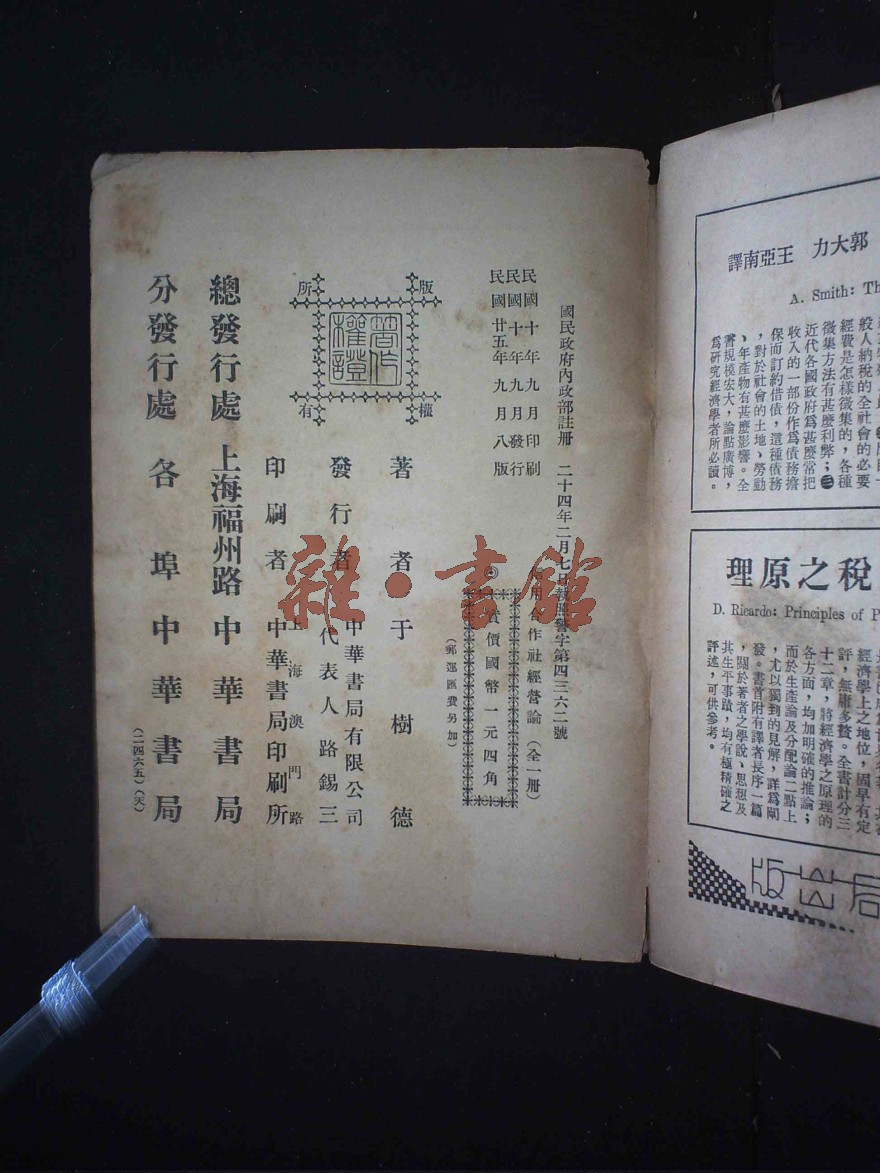 國民政府內政部註冊 二十四年二月七日執照警字第四三六二號
民國十年九月印刷
民國十年九月發行
民國廿五年九月八版
用合作社經營論(全一冊)
實價國幣一元四角
(郵運匯費另加)
版權所有
著作權證
著者 于樹德
發行者 中華書局有限公司
代表人 路錫三
印刷者 上海澳門路
中華書局印刷所
總發行處 上海福州路 中華書局
分發行處 各埠中華書局
(二四六五)(天)
雜·書館
郭大力 王亞南譯
A. Smith: Th
般人納稅的全社會的必要
經費是怎樣徵集的,各種
徵集方法有甚麼利弊;㊂
近代各國政府爲甚麼常把
收入的一部份作爲債務擔
保而訂約借債,這種債務
,對於社會的土地、勞動
、年產物有甚麼影響。全
書規模宏大,論點廣博,
爲研究經濟學者所必讀。
稅之原理
D. Ricardo: Principles of P
經濟學上之地位,固早有定
評,無庸多贅。全書計分三
十二章,將經濟學之原理的
各方面,均加明確的推論;
而於生產論及分配論二點上
,尤以獨到的見解,詳爲闡
發。書首附有譯者長序一篇
,關於著者之學說、思想及
其生平事蹟,均有極精確之
評述,可供參考。
局出版